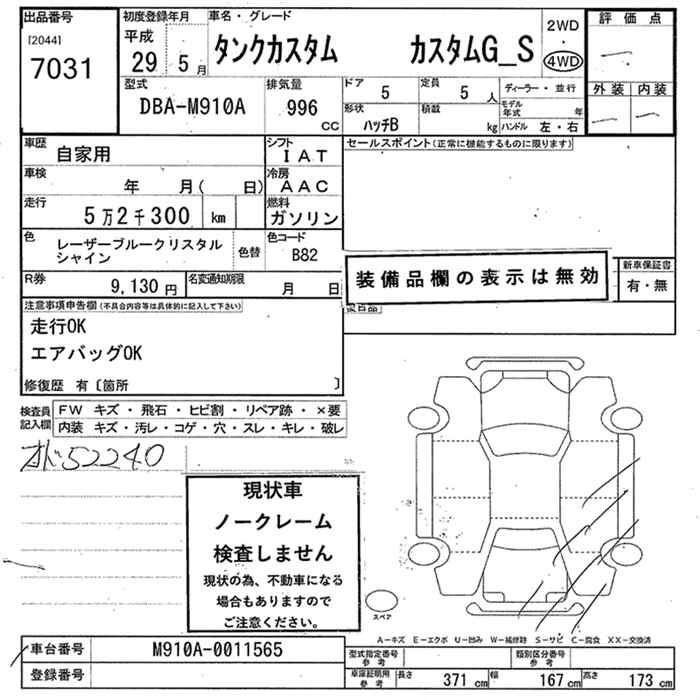 出品番号
[2044]
7031
初度登録年月
平成
29 5 月
車名・グレード
タンクカスタム カスタムG_S
2WD
・
4WD
評価点
外装 内装
型式
DBA-M910A
排気量
996
CC
ドア
5
定員
5 人
ディーラー・並行
形状
ハッチB
積載
kg
モデル
年式 年
ハンドル 左・右
車歴
自家用
シフト
IAT
セールスポイント(正常に機能するものに限ります)
車検
年 月( 日)
冷房
AAC
走行
5万2千300 km
燃料
ガソリン
色
レーザーブルークリスタル
シャイン
色替
色コード
B82
R券
9,130 円
名変通知期限
月 日
装備品欄の表示は無効
新車保証書
有・無
注意事項申告欄(不具合内容等は具体的に記入して下さい)
走行OK
エアバッグOK
修復歴 有〔箇所 〕
検査員
記入欄
FW キズ・飛石・ヒビ割・リペア跡・×要
内装 キズ・汚レ・コゲ・穴・スレ・キレ・破レ
52240
現状車
ノークレーム
検査しません
現状の為、不動車になる
場合もありますので
ご注意ください。
スペア
A-キズ E-エクボ U-凹み W-補修跡 S-サビ C-腐食 XX-交換済
車台番号
M910A-0011565
登録番号
型式指定番号
参考
類別区分番号
参考
車庫証明用
参考
長さ 371 cm 幅 167 cm 高さ 173 cm